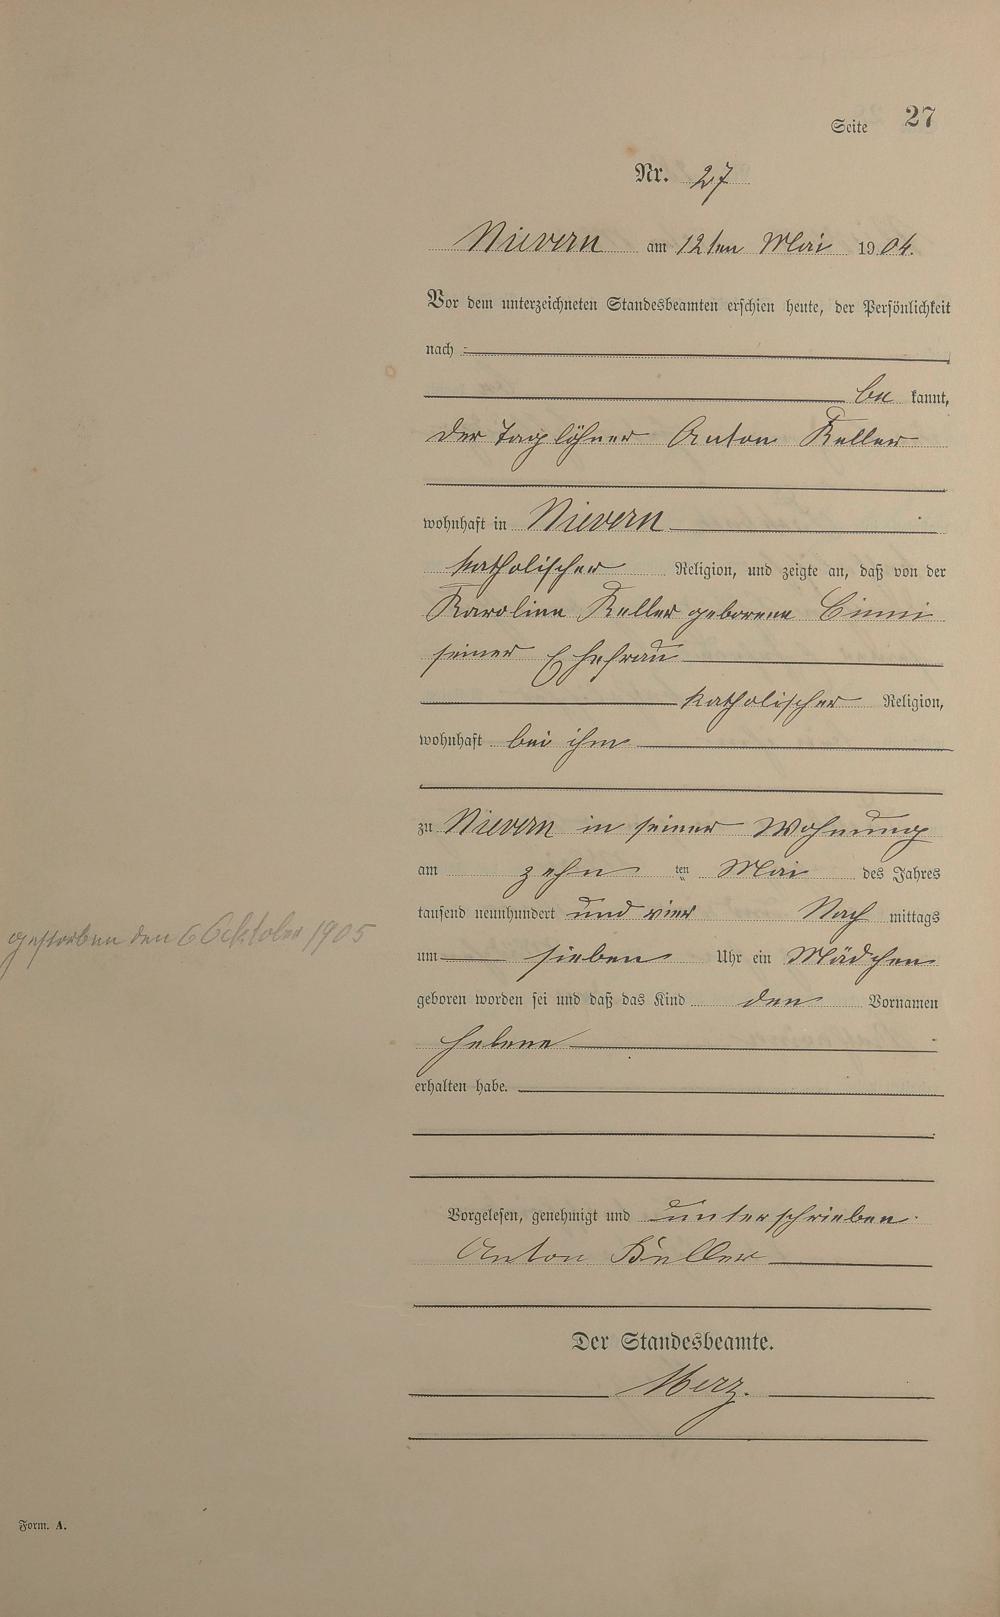 Seite 27
Nr. 27
Nievern am 12ten Mai 1904.
Vor dem unterzeichneten Standesbeamten erschien heute, der Persönlichkeit
nach
be kannt,
der Taglöhner Anton Keller
wohnhaft in Nievern
katholischer Religion, und zeigte an, daß von der
Karoline Keller geborene
seiner Ehefrau
katholischer Religion,
wohnhaft bei ihm
zu Nievern in seiner Wohnung
am zehn ten Mai des Jahres
tausend neunhundert und vier Nach mittags
um sieben Uhr ein Mädchen
geboren worden sei und daß das Kind den Vornamen
Helene
erhalten habe.
gestorben den 6 Oktober 1905
Vorgelesen, genehmigt und unterschrieben.
Anton Keller
Der Standesbeamte.
Merz.
Form. A.